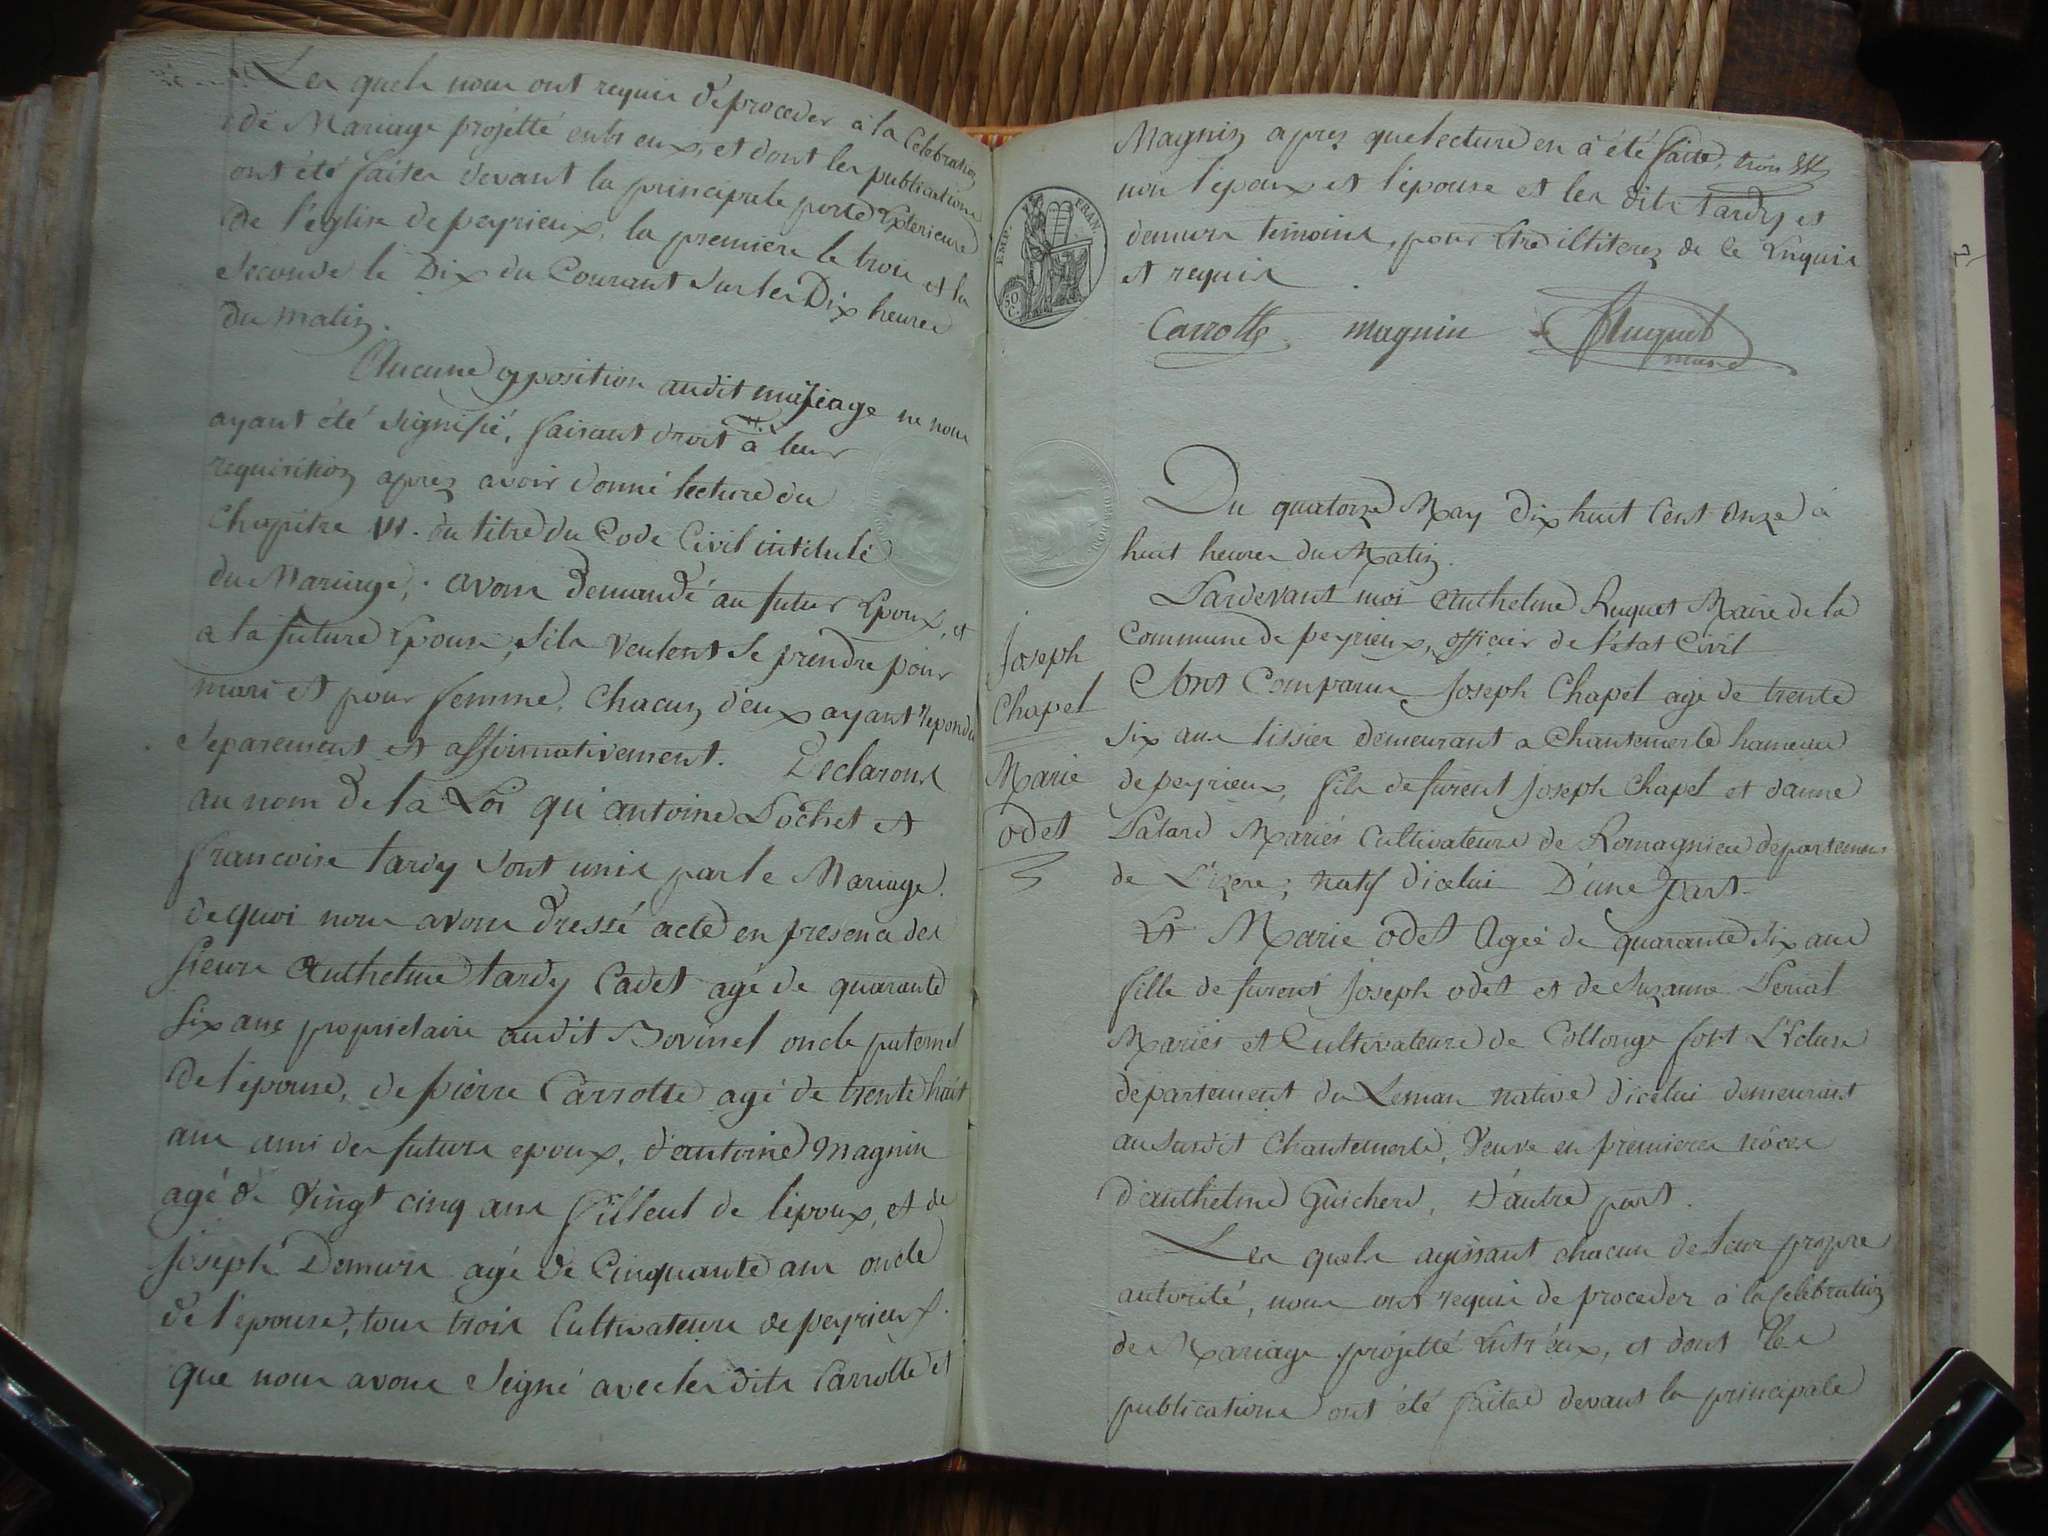 Les quels nous ont requis de proceder à la Celebration
de Mariage projetté entr eux, et dont les publications
ont été faites devant la principale porte Exterieure
de l'église de peyrieux, la premiere le trois et la
seconde le Dix du Courant sur les Dix heures
du matin.
Aucune opposition audit mariage ne nous
ayant été signifié, faisant droit à leur
requisition après avoir donné lecture du
Chapitre VI. du titre du Code Civil intitulé
du Mariage, avons demandé au futur Epoux, et
a la future Epouse, s'ils veulent se prendre pour
mari et pour femme, chacun d'eux ayant repondu
separement et affirmativement. Declarons
au nom de la Loi qu'antoine Pochet et
francoise tardy sont unis par le Mariage.
de quoi nous avons dressé acte en presence des
sieurs Anthelme tardy Cadet agé de quarante
six ans proprietaire audit Bovinel oncle paternel
de l'epouse, de pierre Carrotte agé de trente huit
ans ami des futurs epoux, d'antoine Magnin
agé de vingt cinq ans filleul de l'époux, et de
joseph Demurs agé de Cinquante ans oncle
de l'epouse, tous trois Cultivateurs de peyrieux.
que nous avons Seigné avec les dits Carrotte et
Magnin apres que lecture en à été faite,
non l'epoux et l'épouse et les dits tardy et
demurs temoins, pour Etre illiterez de ce Enquis
et requis
EMP. FRAN.
50 C.
Carrotte magnin Huguet
maire
Du quatorze May dix huit Cent Onze à
huit heures du Matin.
Pardevant moi Anthelme Huguet Maire de la
Commune de peyrieux, officier de l'état Civil
Joseph
Chapel
Marie
odet
Sont Comparus Joseph Chapel agé de trente
six ans tissier demeurant a Chantemerle hameau
de peyrieux, fils de furent Joseph Chapel et d'anne
Palard Mariés Cultivateurs de Romagnieu departement
de L'izere; natif d'icelui D'une part.
Et Marie odet Agée de quarante six ans
fille de furent Joseph odet et de Suzanne Perial
Mariés et Cultivateurs de Collonge fort L'Ecluse
departement du Leman native d'icelui demeurant
au susdit Chantemerle, Veuve en premieres nôces
d'anthelme Guicherd, D'autre part.
Les quels agissant chacun de leur propre
autorité, nous ont requis de proceder à la Celebration
de Mariage projetté Entr'eux, et dont les
publications ont été faites devant la principale